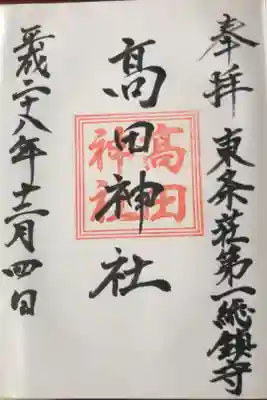 奉拝
東条荘第一総鎮守
髙田神社
高田
神社
平成二十八年十二月四日